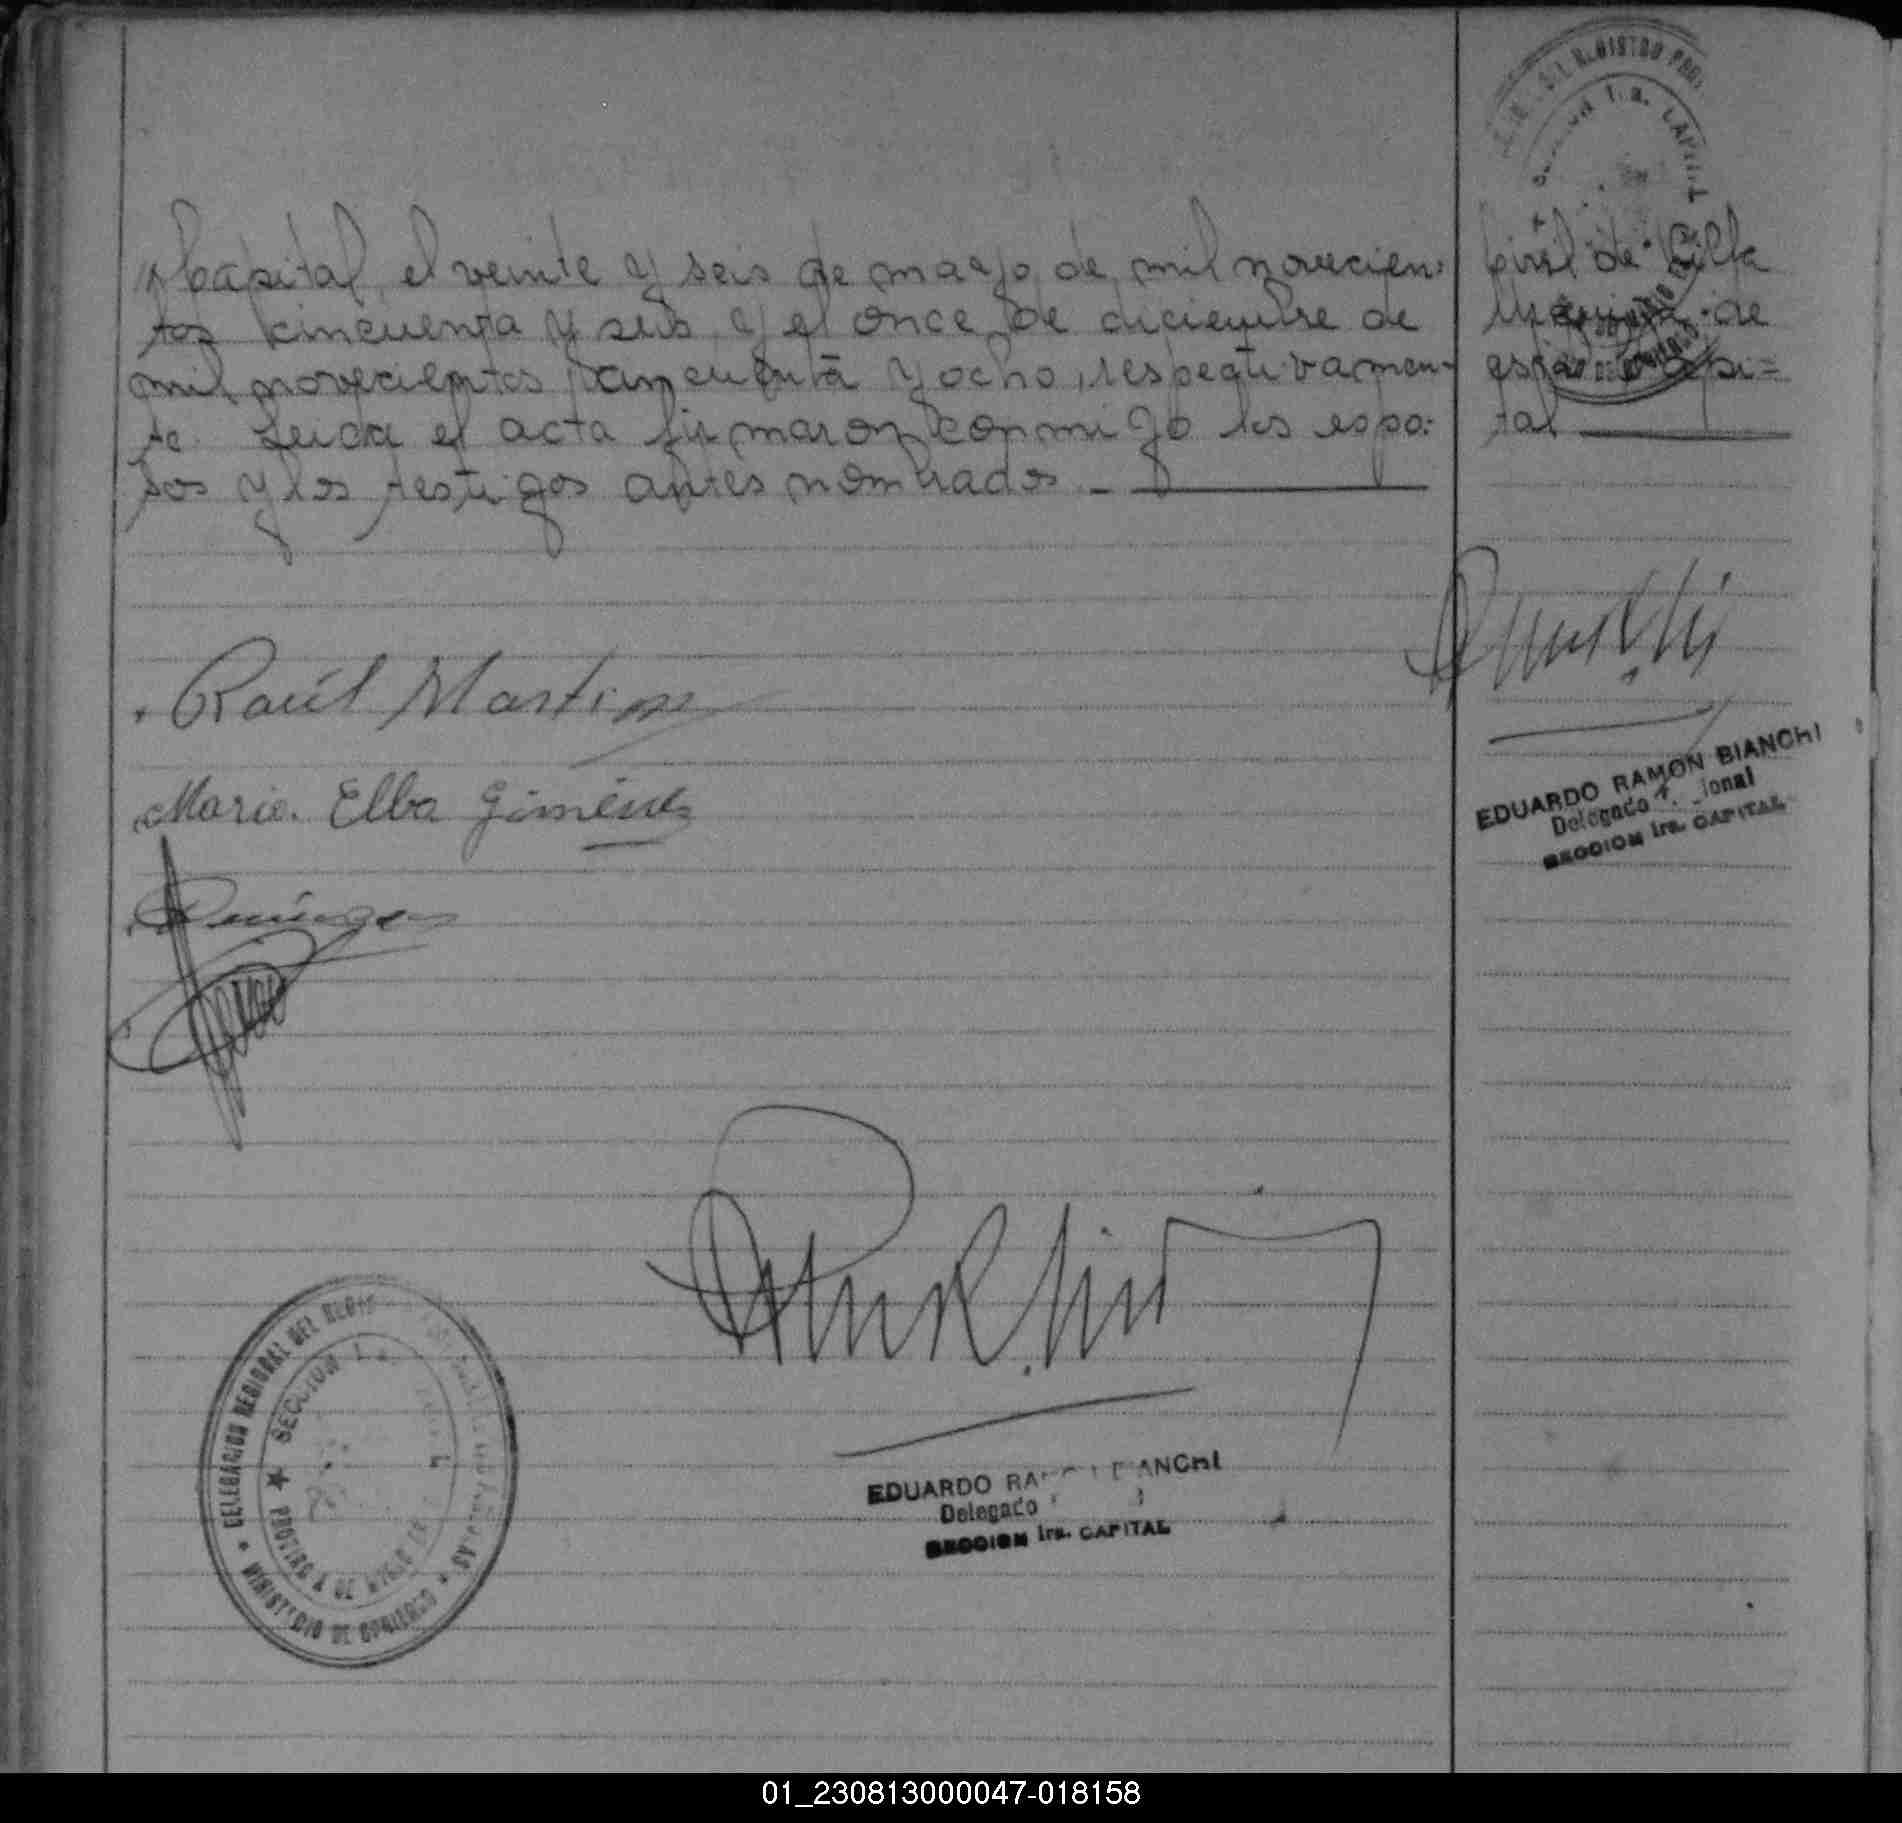 Capital, el veinte y seis de mayo de mil novecien-
tos cincuenta y seis y el once de diciembre de
mil novecientos cincuenta y ocho, respectivamen-
te. Leida el acta firmaron conmigo los espo-
sos y los testigos antes nombrados. -
Raúl Martinez
Maria. Elba Giménez
EDUARDO
Delegado
SECCION 1ra. CAPITAL
DELEGACION REGIONAL DEL
MINISTERIO DE GOBIERNO
SECCION 1a.
Civil de Villa
de
esta Capi=
tal
EDUARDO RAMON BIANCHI
Delegado
SECCION 1ra. CAPITAL
01_230813000047-018158